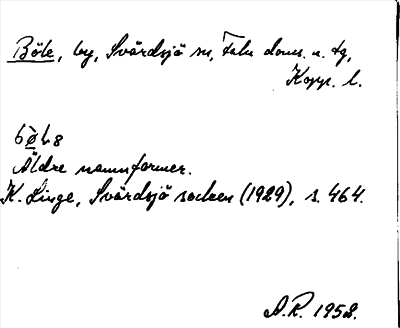 Böle, by, Svärdsjö sn, Falu doms. n. tg,
Kopp. l.
bø̀lə
Äldre namnformer.
K. Linge, Svärdsjö socken (1929), s. 464.
A.R. 1952.